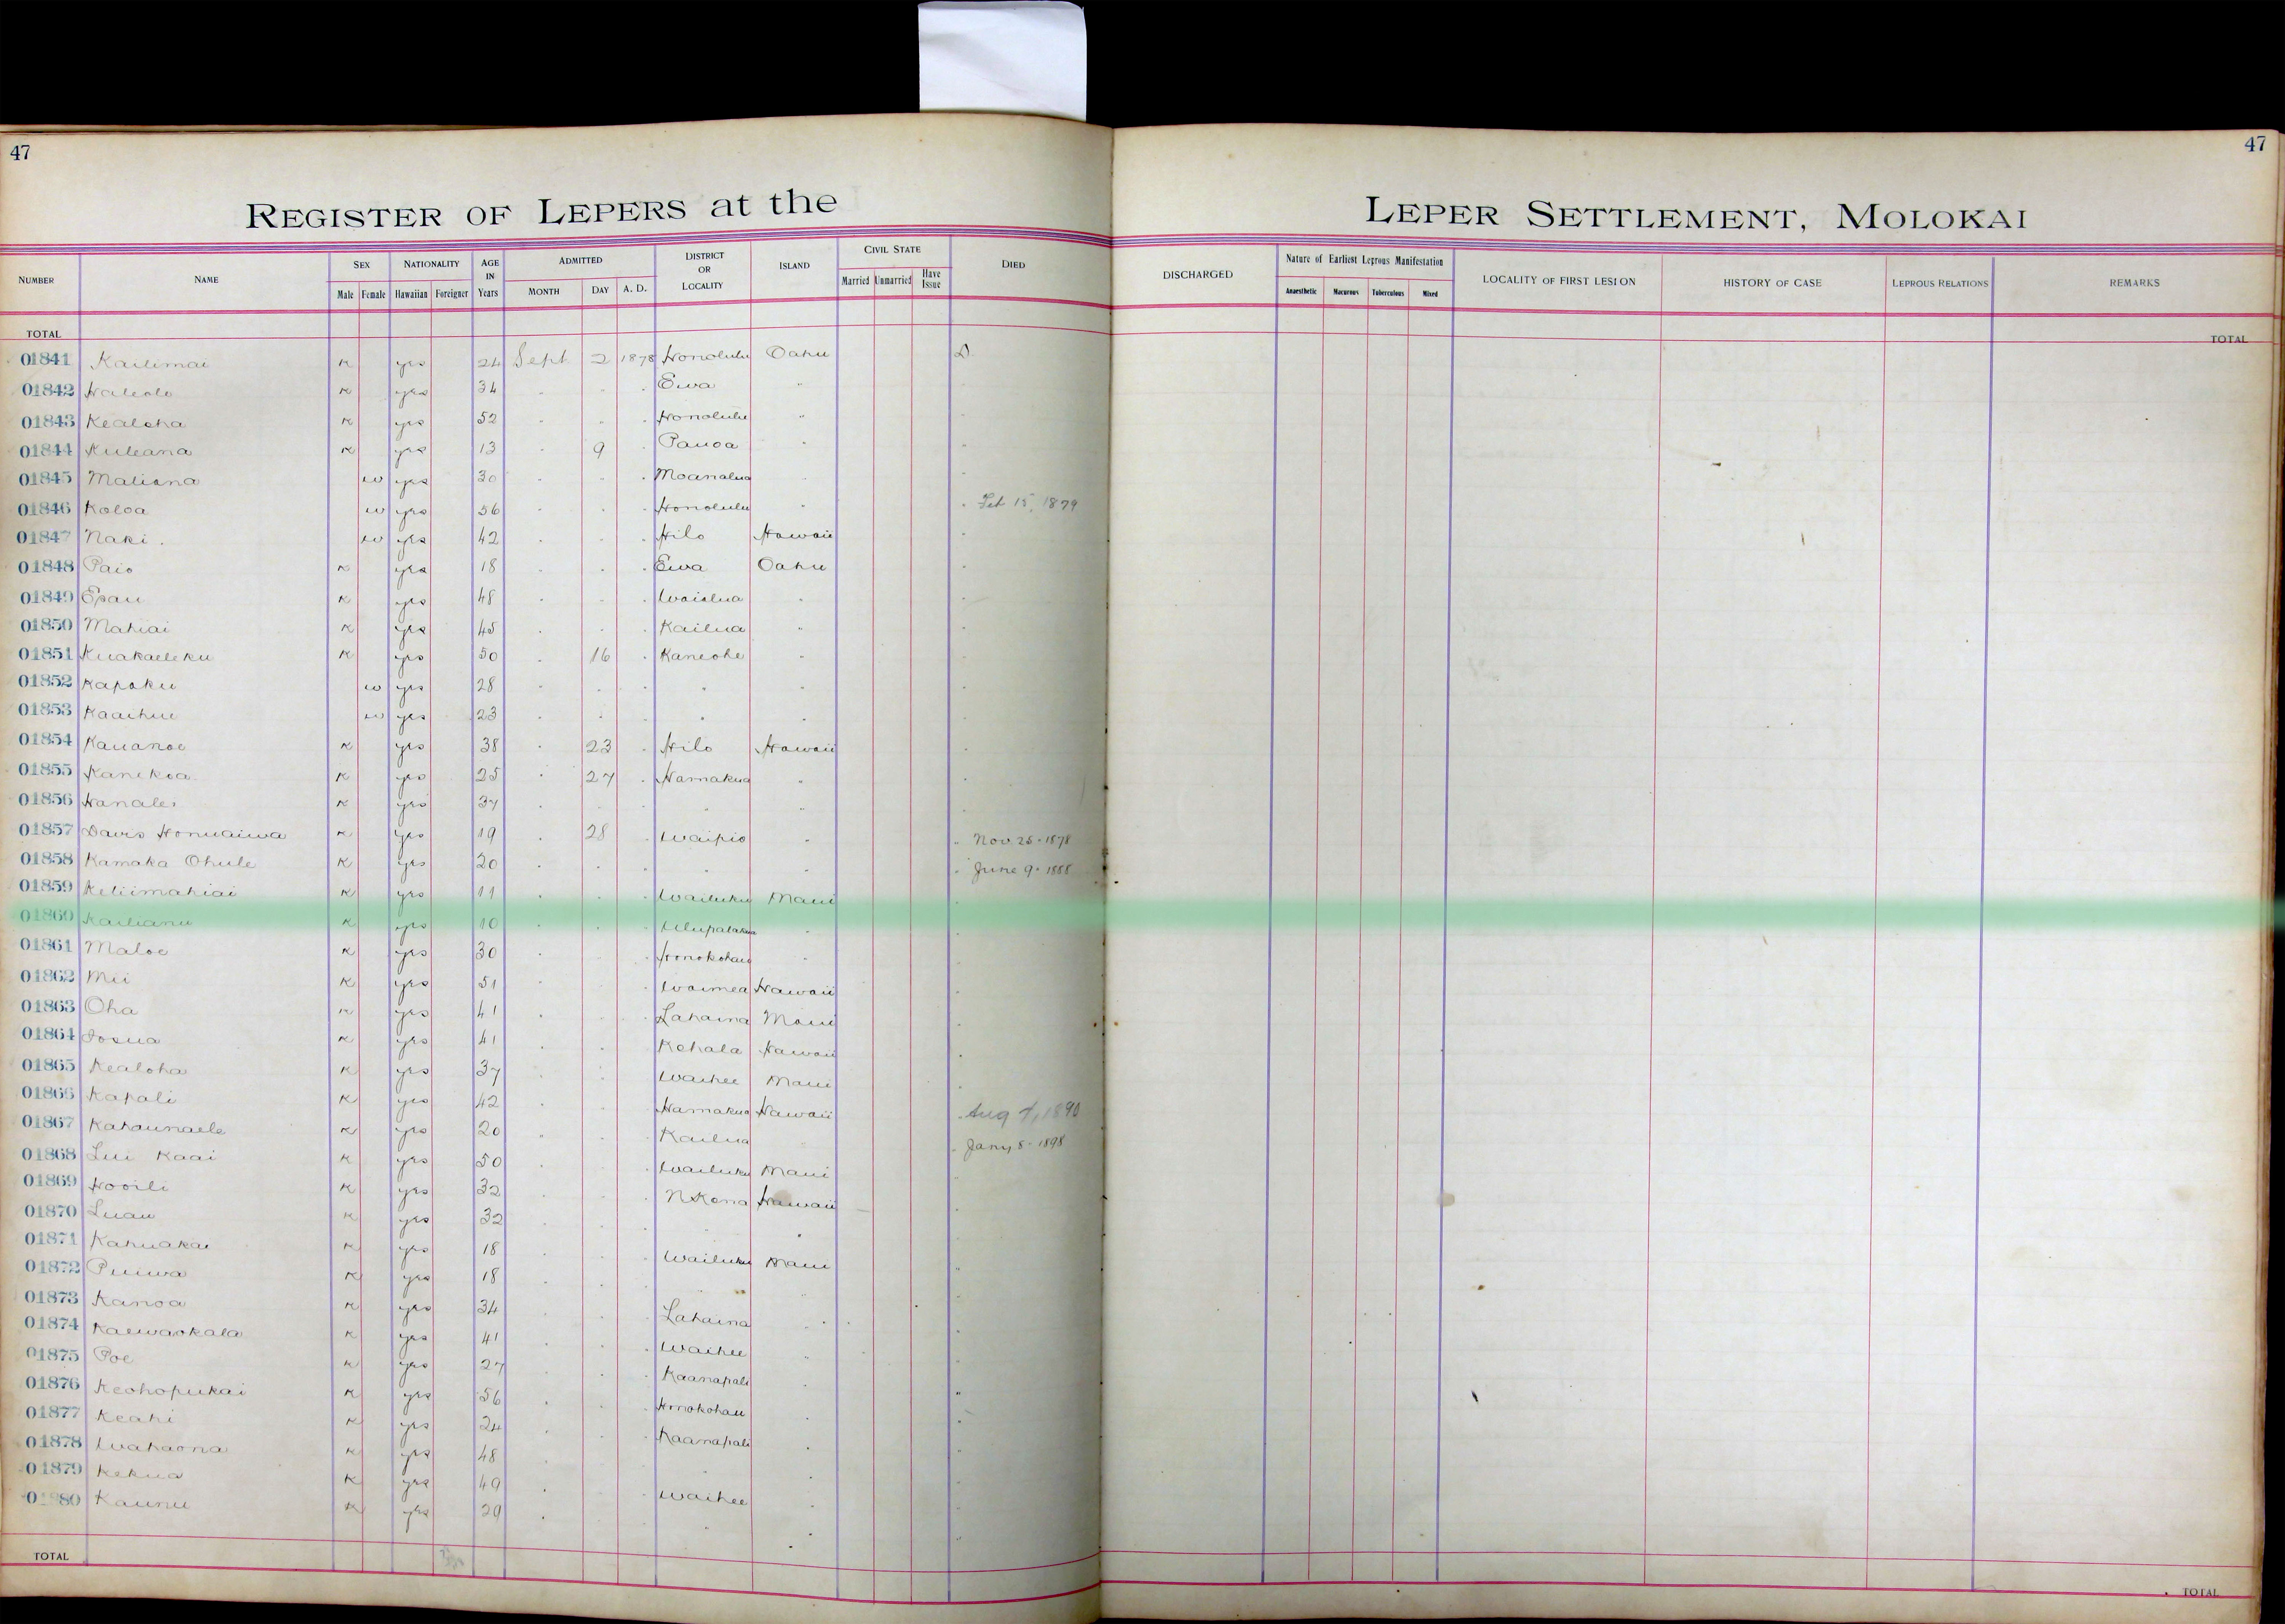 47
47
REGISTER OF LEPERS at the LEPER SETTLEMENT, MOLOKAI
NUMBER NAME SEX NATIONALITY AGE IN Years ADMITTED DISTRICT OR LOCALITY ISLAND CIVIL STATE DIED DISCHARGED Nature of Earliest Leprous Manifestation LOCALITY OF FIRST LESION HISTORY OF CASE LEPROUS RELATIONS REMARKS
Male Female Hawaiian Foreigner MONTH DAY A. D. Married Unmarried Have Issue Anaesthetic Macurous Tuberculous Mixed
TOTAL TOTAL
01841 Kailimai K yes 24 Sept 2 1878 Honolulu Oahu D
01842 Haleolo K yes 34 " " " Ewa "
01843 Kealoha K yes 52 " " " Honolulu "
01844 Kuleana K yes 13 " 9 " Pauoa "
01845 Maliana w yes 30 " " " Moanalua "
01846 Koloa w yes 56 " " " Honolulu " " Feb 15, 1879
01847 Naki w yes 42 " " " Hilo Hawaii "
01848 Paio K yes 18 " " " Ewa Oahu "
01849 Epau K yes 48 " " " Waialua " "
01850 Mahiai K yes 45 " " " Kailua " "
01851 Kuakaeleku K yes 50 " 16 " Kaneohe " "
01852 Kapoku w yes 28 " " " " " "
01853 Kaaihue w yes 23 " " " " " "
01854 Kauanoe K yes 38 " 23 " Hilo Hawaii "
01855 Kanekoa K yes 25 " 27 " Hamakua " "
01856 Hanalei K yes 37 " " " " " "
01857 Davis Honuaiwa K yes 19 " 28 " Waipio " " Nov 25 - 1878
01858 Kamaka Ohule K yes 20 " " " " " " June 9 - 1888
01859 Keliimahiai K yes 11 " " " Wailuku Maui
01860 Kailianu K yes 10 " " " Ulupalakua " "
01861 Maloe K yes 30 " " " Honokohau " "
01862 Mii K yes 51 " " " Waimea Hawaii "
01863 Oha K yes 41 " " " Lahaina Maui "
01864 Iosua K yes 41 " " " Kohala Hawaii "
01865 Kealoha K yes 37 " " " Waihee Maui "
01866 Kapali K yes 42 " " " Hamakua Hawaii " Aug 7, 1890
01867 Kahaunaele K yes 20 " " " Kailua " " Jany 8 - 1898
01868 Lui Kaai K yes 50 " " " Wailuku Maui "
01869 Hooili K yes 32 " " " N Kona Hawaii "
01870 Luau K yes 32 " " " " " "
01871 Kahuakai K yes 18 " " " Wailuku Maui "
01872 Puiwa K yes 18 " " " " " "
01873 Kanoa K yes 34 " " " Lahaina " "
01874 Kaewaokala K yes 41 " " " Waihee " "
01875 Poe K yes 27 " " " Kaanapali " "
01876 Keohopukai K yes 56 " " " Honokohau " "
01877 Keahi K yes 24 " " " Kaanapali " "
01878 Wahaona K yes 48 " " " " " "
01879 Kekua K yes 49 " " " Waihee " "
01880 Kaunu K yes 29 " " " " " "
TOTAL TOTAL